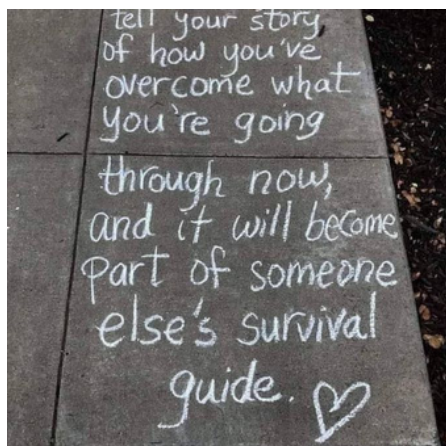 tell your story
of how you've
overcome what
you're going
through now,
and it will become
part of someone
else's survival
guide.